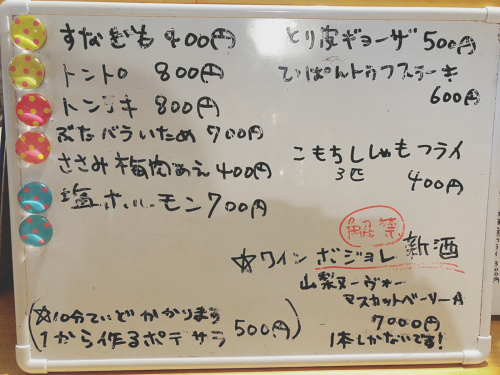 すなぎも 400円
トントロ 800円
トンテキ 800円
ぶたバラいため 700円
ささみ梅肉あえ 400円
塩ホルモン 700円
とり皮ギョーザ 500円
てっぱんトゥフステーキ
600円
こもちししゃもフライ
3匹 400円
解禁
☆ワイン ボジョレ 新酒
山梨ヌーヴォー
マスカットベーリーA
7000円
1本しかないです!
(☆10分ていどかかります
1から作るポテサラ 500円)